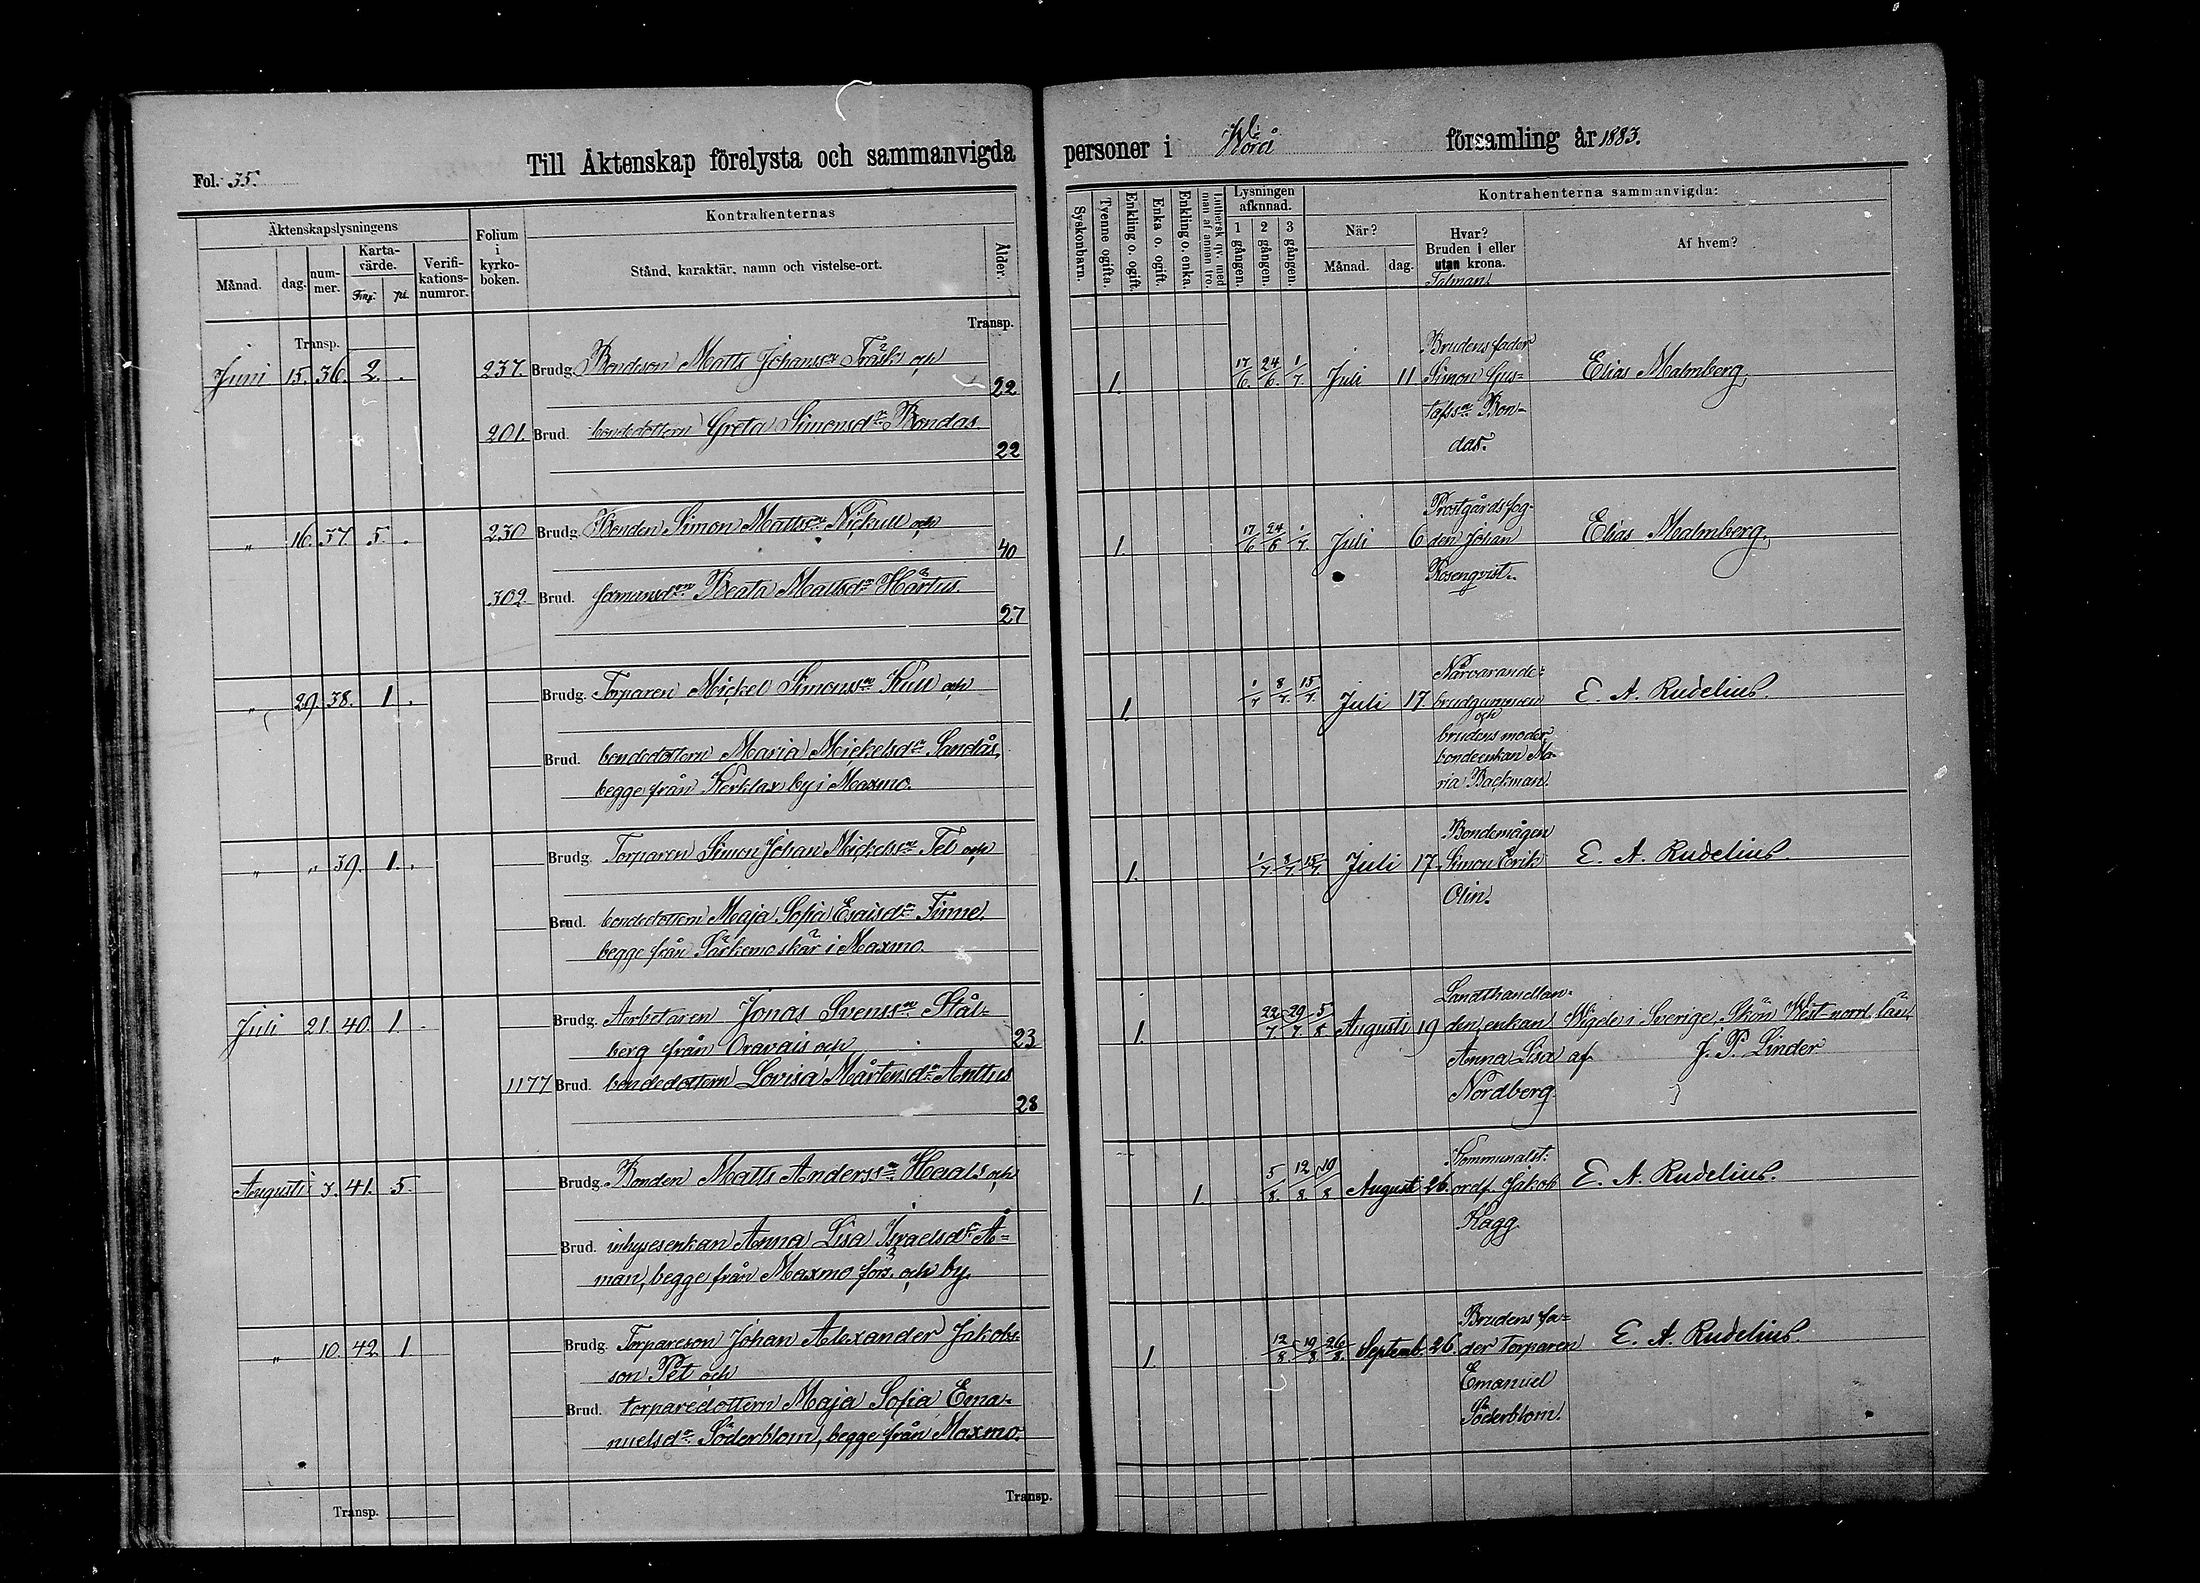 Fol. 35.
Till Äktenskap förelysta och sammanvigda personer i Wörå församling år 1883.
Äktenskapslysningens
Månad.
dag.
num-
mer.
Karta-
värde.
Fmg.
pi.
Verifi-
kations-
numror.
Folium
i
kyrko-
boken.
Kontrahenternas
Stånd, karaktär, namn och vistelse-ort.
Ålder.
Syskonbarn.
Tvenne ogifta.
Enkling o. ogift.
Enka o. ogift.
Enkling o. enka.
Luthersk qv. med
man af annan tro.
Lysningen
afknnad.
1 gången.
2 gången.
3 gången.
Kontrahenterna sammanvigda:
När?
Månad.
dag.
Hvar?
Bruden i eller
utan krona.
Talman
Af hvem?
Transp.
Transp.
Juni 15. 36. 2. .
237. Brudg. Bondeson Matts Johanss:n Träsk och
22
201. Brud. bondedottern Greta Simonsd:r Bondas.
22
1. 17/6. 24/6. 1/7 Juli 11
Brudens fader
Simon Gus-
tafss:n Bon-
das.
Elias Malmberg,
" 16. 37. 5. .
230 Brudg. Bonden Simon Mattss:n Nickull och
40
302 Brud. Beata Mattsd:r Härtus.
27
1. 17/6 24/6 1/7. Juli 6
Prostgårdsfog-
den Johan
Rosenqvist.
Elias Malmberg,
" 29 38. 1. .
Brudg. Torparen Mickel Simonss:n Kull och
Brud. bondedottern Maria Mickelsd:r Sandås,
begge från Kerklax by i Maxmo.
1. 1/7 8/7. 15/7. Juli 17.
Närvarande:
brudgummen
och
brudens moder
bondeenkan Ma-
ria Backman.
E. A. Rudelius.
" " 39. 1. .
Brudg. Torparen Simon Johan Mickelss:n Tel och
Brud. bondedottern Maja Sofia Esaisd:r Finne.
begge från Särkemoskär i Maxmo.
1. 1/7 8/7 15/7. Juli 17.
Bondemågen
Simon Erik
Olin.
E. A. Rudelius.
Juli 21. 40. 1. .
Brudg. Arbetaren Jonas Svenss:n Stål-
berg från Oravais och
23
1177 Brud. bondedottern Lovisa Mårtensd:r Anttus
28
1. 22/7. 29/7. 5/8 Augusti 19
Landthandlan-
den, enkan
Anna Lisa
Nordberg.
Wigde i Sverige, Skön West-norrl. län,
af J. P. Linder
Augusti 3. 41. 5.
Brudg. Bonden Matts Anderss:n Haals och
Brud. inhysesenkan Anna Lisa Israelsd:r Å-
man, begge från Maxmo förs. och by.
1 5/8. 12/8. 19/8 Augusti 26.
Kommunalst:
ordf. Jakob
Kagg.
E. A. Rudelius.
" 10. 42. 1.
Brudg. Torpareson Johan Alexander Jakobs-
son Pet och
Brud. torparedottern Maja Sofia Ema-
nuelsd:r Söderblom, begge från Maxmo.
1. 12/8. 19/8 26/8. Septemb. 26.
Brudens fa-
der torparen
Emanuel
Söderblom.
E. A. Rudelius.
Transp.
Transp.